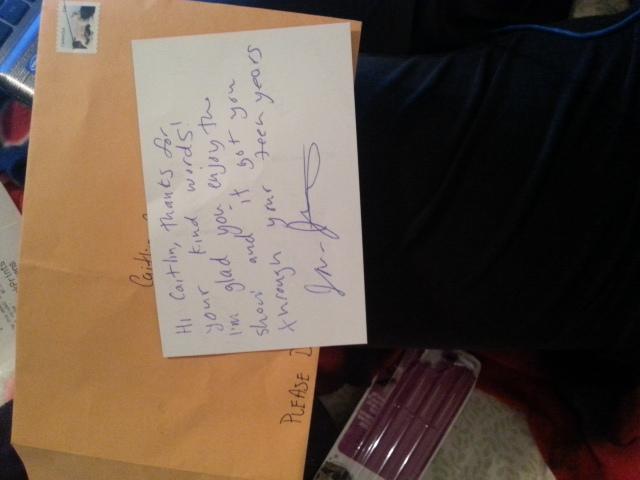 Hi Caitlin, thanks for
your kind words!
I'm glad you enjoy the
show and it got you
through your teen years
PLEASE